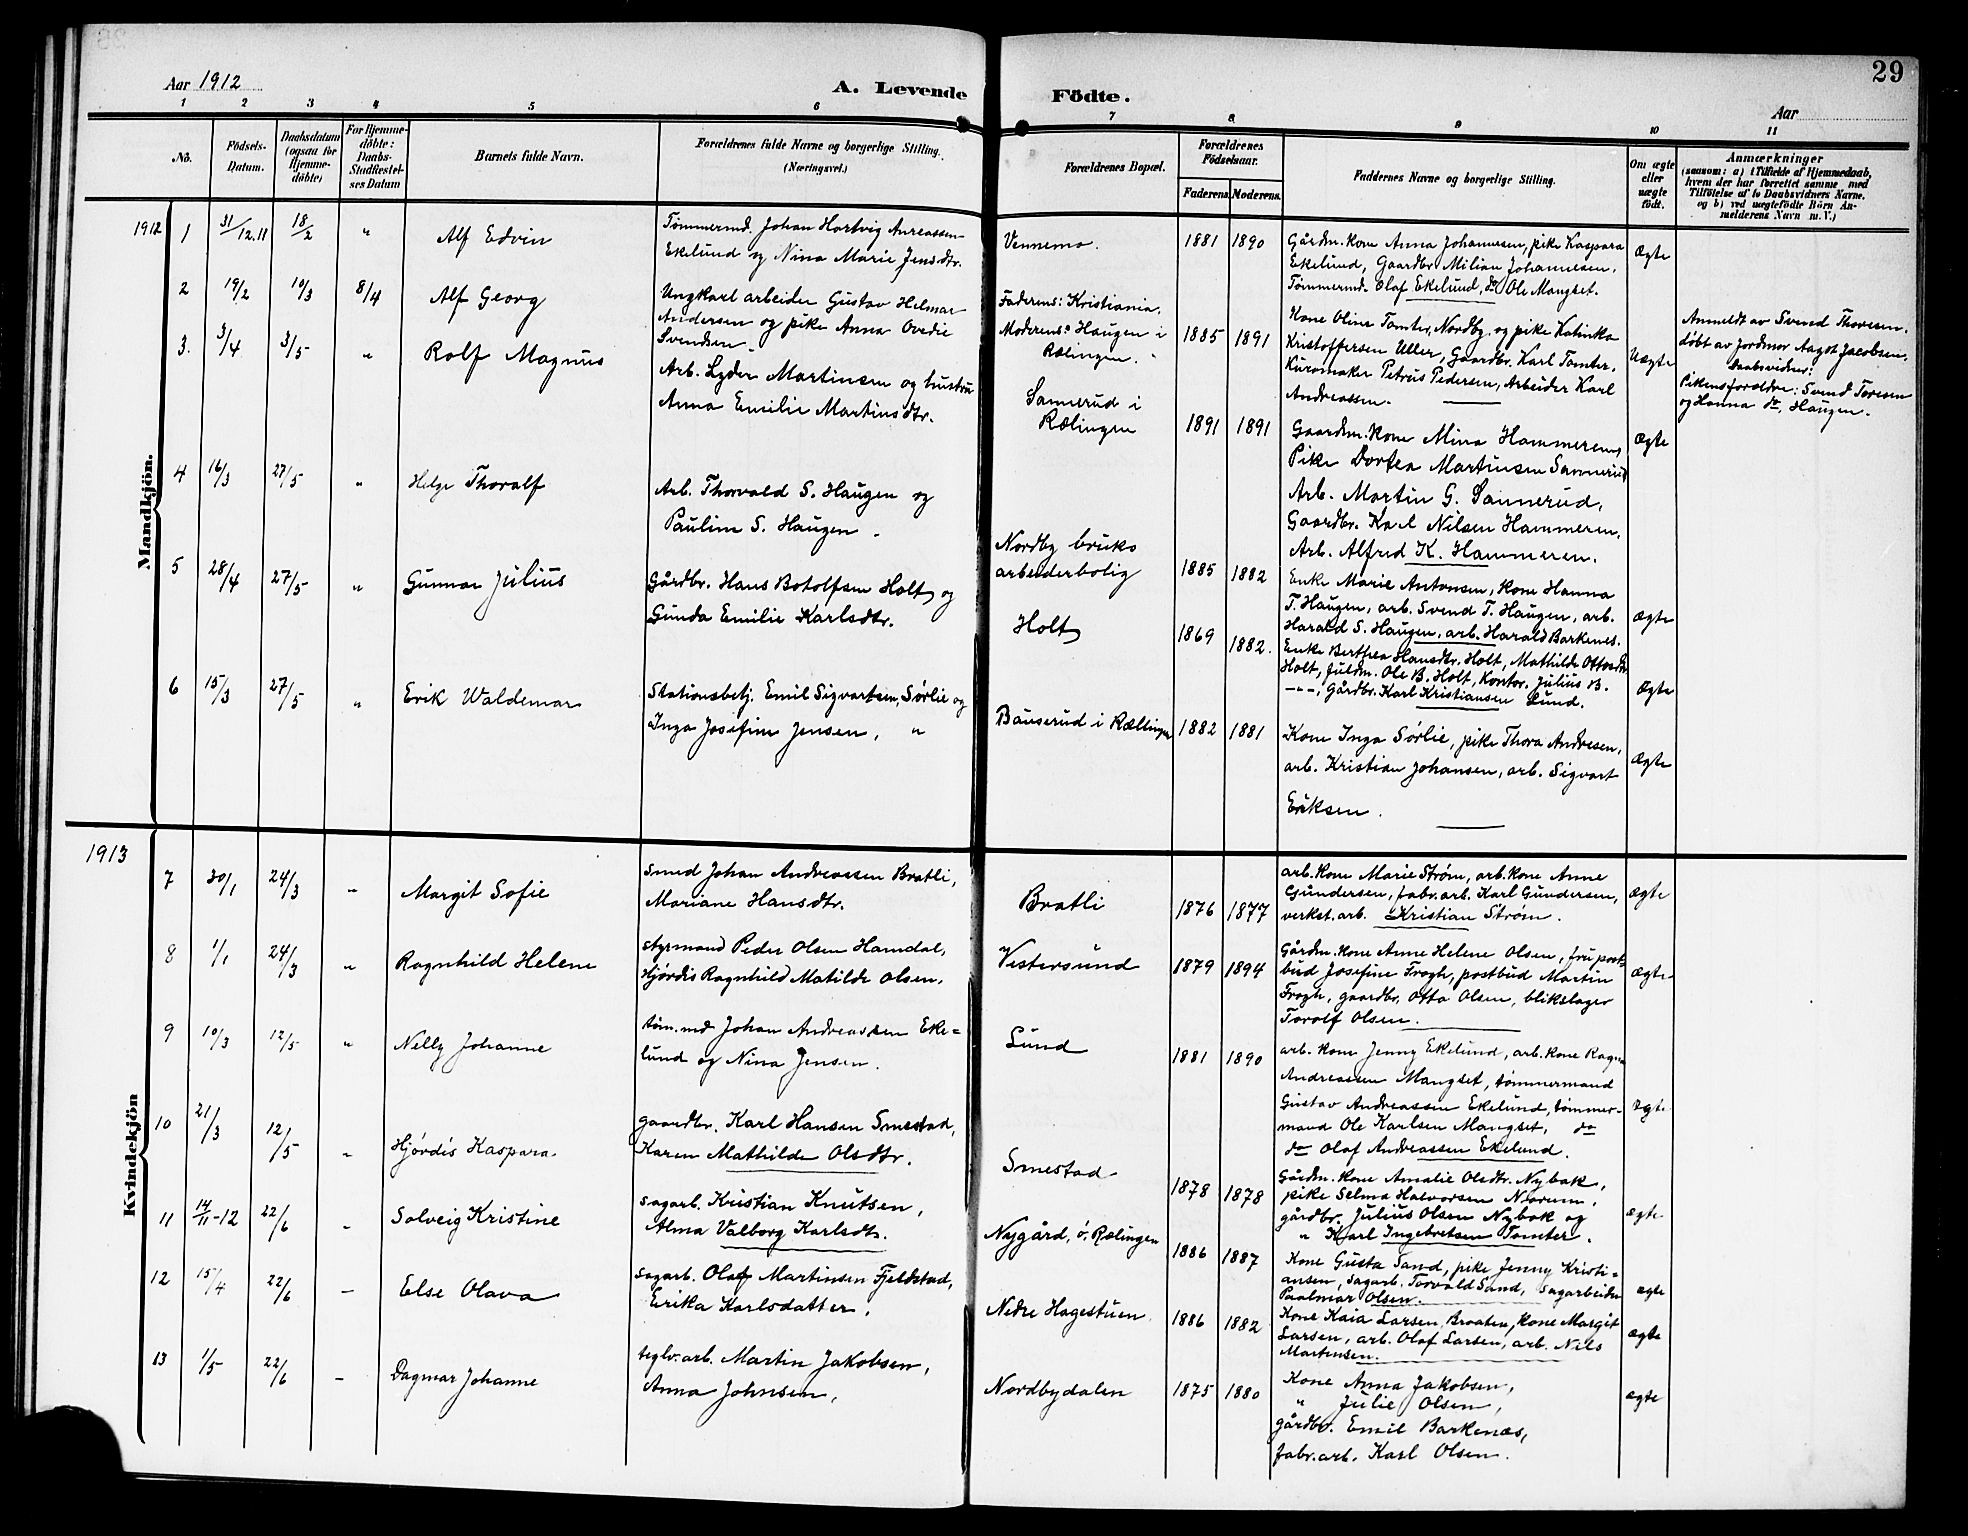 Aar 1912
A. Levende Födte.
29
Aar
1 2 3 4 5 6 7 8 9 10 11
No.
Födsels-Datum.
Daabsdatum (ogsaa for Hjemmedöbte)
For Hjemmedöbte: Daabs-Stadfestelses Datum
Barnets fulde Navn.
Forældrenes fulde Navne og borgerlige Stilling. (Næringsvei.)
Forældrenes Bopæl.
Forældrenes Födselsaar.
Faderens. Moderens.
Faddernes Navne og borgerlige Stilling.
Om ægte eller uægte födt.
Anmærkninger
(saasom: a) i Tilfælde af Hjemmedaab,
hvem der har forrettet samme med
Tilföielse af to Daabsvidners Navne.
og b) ved uægtefödte Börn An-
melderens Navn m. V.)
Mandkjön.
1912 1 31/12.11 18/2 " Alf Edvin
Tømmermd. Johan Hartvig Anreassen
Ekelund og Nina Marie Jensdtr.
Vennemo. 1881 1890
Gårdm. kone Anna Johannesen, pike Kaspara
Ekelund, Gaardbr. Milian Johannesen,
Tømmermd. Olaf Ekelund, do Ole Mangset.
Ægte
2 19/2 10/3 8/4 Alf Georg
Ungkarl arbeider Gustav Helmar
Andersen og pike Anna Ovedie
Svendsen
Faderens: Kristiania.
Moderens: Haugen i
Rælingen.
1885 1891
Kone Oline Tomter, Nordby, og pike Katinka
Kristoffersen Uller, Gaardbr. Karl Tomter,
Kurvmaker Petrus Pedersen, Arbeider Karl
Andreassen.
Uægte
Anmeldt av Svend Thoresen.
døbt av Jordmor Aagot Jacobsen.
Daabsvidner:
Pikens forældre: Svend Toresen
og Hanna do, Haugen.
3. 3/4 3/5 " Rolf Magnus
Arb. Lyder Martinsen og hustru
Anna Emilie Martinsdtr.
Sannerud i
Rælingen
1891 1891
Gaardm. kone Mina Hammeren,
Pike Dortea Martinsen Sannerud
Arb. Martin G. Sannerud,
Gaardbr. Karl Nilsen Hammeren,
Arb. Alfred K. Hammeren.
Ægte
4 16/3 27/5 " Helge Thoralf
Arb. Thorvald S. Haugen og
Pauline S. Haugen.
Nordby bruks
arbeiderbolig
1885 1882
Enke Marie Antonsen, kone Hanna
T. Haugen, arb. Svend T. Haugen, arb.
Harald S. Haugen, arb. Harald Barkenes.
Ægte
5 28/4 27/5 " Gunnar Julius
Gårdbr. Hans Botolfsen Holt og
Gunda Emilie Karlsdtr.
Holt 1869 1882.
Enke Berthea Hansdtr. Holt, Mathilde Ottosdtr.
Holt, Ole B. Holt, kontor. Julius B.
—"—, Gårdbr. Karl Kristiansen Lund.
Ægte
6 15/3 27/5 " Erik Waldemar
Stationsbetj. Emil Sigvartsen, Sørlie og
Inga Josefine Jensen, "
Bauserud i Rælingen 1882 1881
Kone Inga Sørlie, pike Thora Andresen,
arb. Kristian Johansen, arb. Sigvart
Eriksen.
Ægte
1913
Kvindekjön
7 30/1 24/3 " Margit Sofie
Smed Johan Andreassen Bratli,
Mariane Hansdtr.
Bratli 1876 1877
arb. kone Marie Strøm, arb. kone Anne
Gundersen, fabr. arb. Karl Gundersen,
verkst. arb. Kristian Strøm.
ægte
8 1/1 24/3 " Ragnhild Helene
styrmand Peder Olsen Hamdal,
Hjørdis Ragnhild Matilde Olsen.
Vestersund 1879 1894
Gårdm. kone Anne Helene Olsen, fru post-
bud Josefine Frogh, postbud Martin
Frogh, gaardbr. Otto Olsen, blikslager
Torolf Olsen.
ægte
9 10/3 12/5 " Nelly Johanne
tøm. md Johan Andreassen Eke=
lund og Nina Jensen.
Lund 1881 1890
arb. kone Jenny Ekelund, arb. kone Ragna
Andreassen Mangset, tømmermand
Gustav Andreassen Ekelund, tømmer-
mand Ole Karlsen Mangset, do
do Olaf Andreassen Ekelund.
ægte
10 21/3 12/5 " Hjørdis Kaspara
gaardbr. Karl Hansen Smestad,
Karen Mathilde Olsdtr.
Smestad 1878 1878
Gårdm. kone Amalie Olsdtr. Nybak,
pike Selma Halvorsen Norum,
gårdbr. Julius Olsen Nybak og
" Karl Ingebretsen Tomter.
ægte
11 14/11-12 22/6 " Solveig Kristine
Sagarb. Kristian Knutsen,
Alma Valborg Karlsdtr.
Nygård, ö. Rælingen 1886 1887
Kone Gusta Sand, pike Jenny Kristi=
ansen, sagarb. Torvald Sand, Sagarbeider
Paalmar Olsen.
ægte
12 15/4 22/6 — Else Olava
Sagarb. Olaf Martinsen Fjeldstad,
Erika Karlsdatter,
Nedre Hagestuen 1886 1882
Kone Kaia Larsen, Braaten, kone Margit
Larsen, arb. Olaf Larsen, arb. Nils
Martinsen.
ægte
13 1/5 22/6 — Dagmar Johanne
teglv. arb. Martin Jakobsen,
Anna Johnsen,
Nordbydalen 1875 1880
Kone Anna Jakobsen,
" Julie Olsen,
gårdbr. Emil Barkenæs,
fabr. arb. Karl Olsen.
ægte